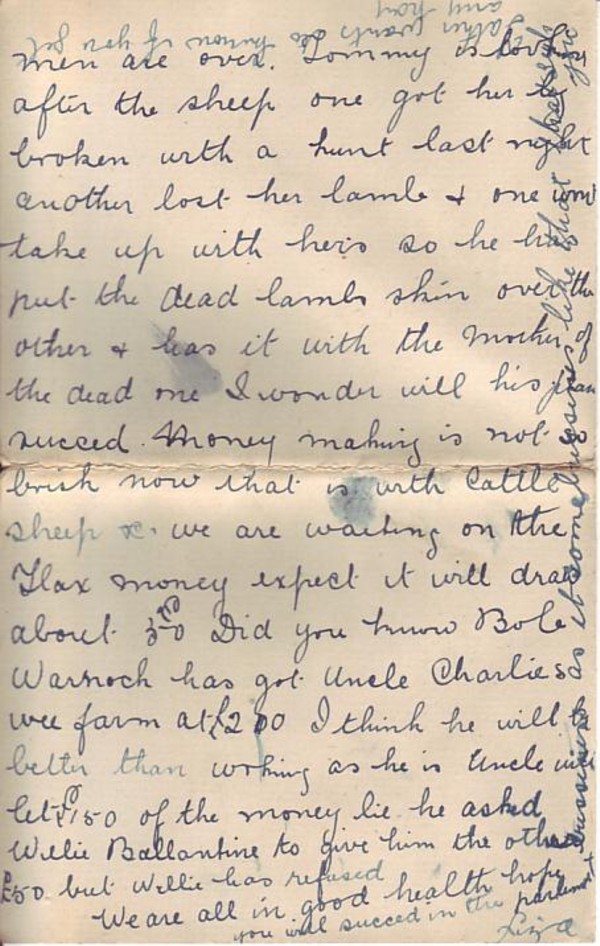 men are over. Tommy is looking
after the sheep one got her leg
broken with a hunt last night
another lost her lamb & one won't
take up with hers so he has
put the dead lambs skin over the
other & has it with the mother of
the dead one I wonder will his plan
succed. Money making is not
brisk now that is with Cattle
sheep &c. we are waiting on the
Flax money expect it will draw
about 50 Did you know Bob
Warnock has got Uncle Charlies
wee farm at £200 I think he will be
better than working as he is Uncle will
let £150 of the money lie he asked
Willie Ballantine to give him the other
£50 but Willie has refused
We are all in good health hope
you will succed in the
Lizzie
as it some bussiness like that
Father wants des humon if you get
any how